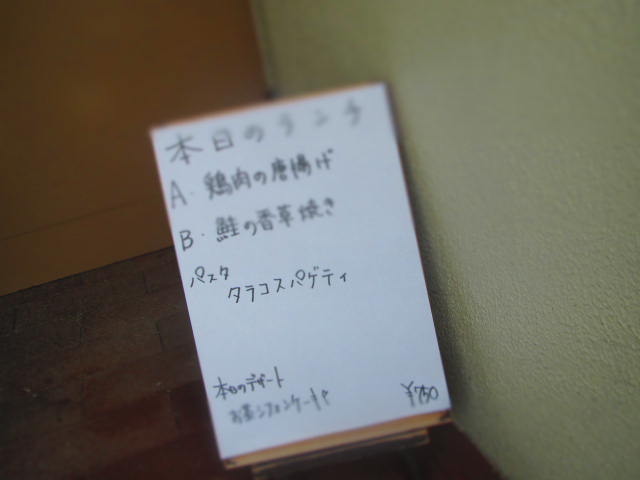 本日のランチ
A. 鶏肉の唐揚げ
B. 鮭の香草焼き
パスタ
タラコスパゲティ
本日のデザート
お茶シフォンケーキ
¥750